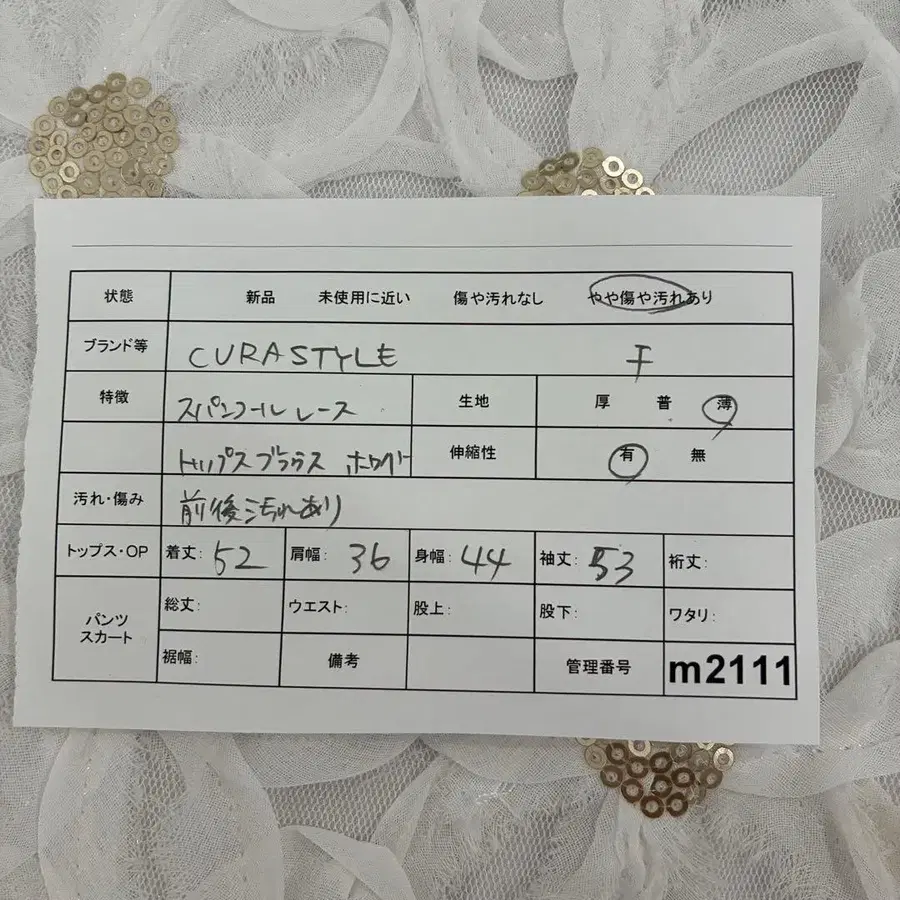 状態 新品 未使用に近い 傷や汚れなし やや傷や汚れあり
ブランド等 CURASTYLE F
特徴 スパンコールレース 生地 厚 普 薄
トップスブラウス ホワイト 伸縮性 有 無
汚れ・傷み 前後汚れあり
トップス・OP 着丈: 52 肩幅: 36 身幅: 44 袖丈: 53 裄丈:
パンツ スカート 総丈: ウエスト: 股上: 股下: ワタリ:
裾幅: 備考 管理番号 m2111